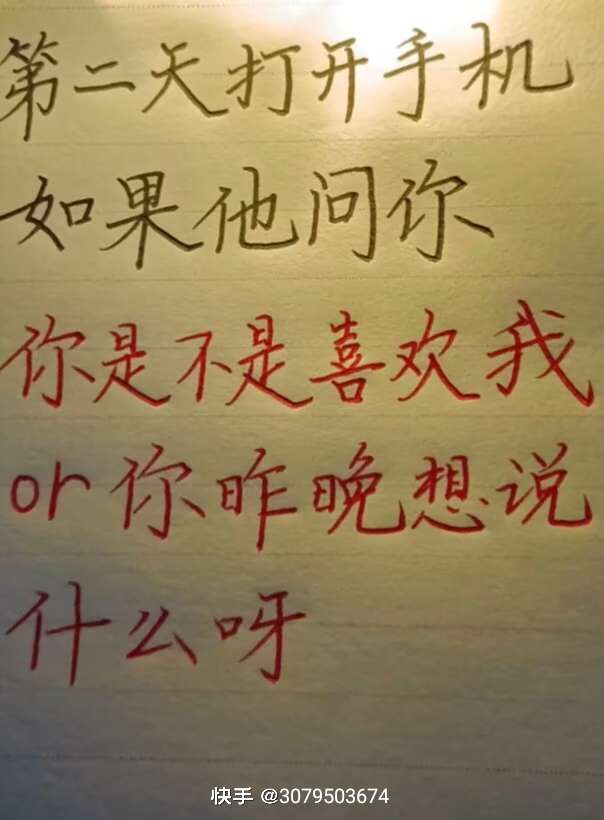 第二天打开手机
如果他问你
你是不是喜欢我
or你昨晚想说
什么呀
快手 @3079503674